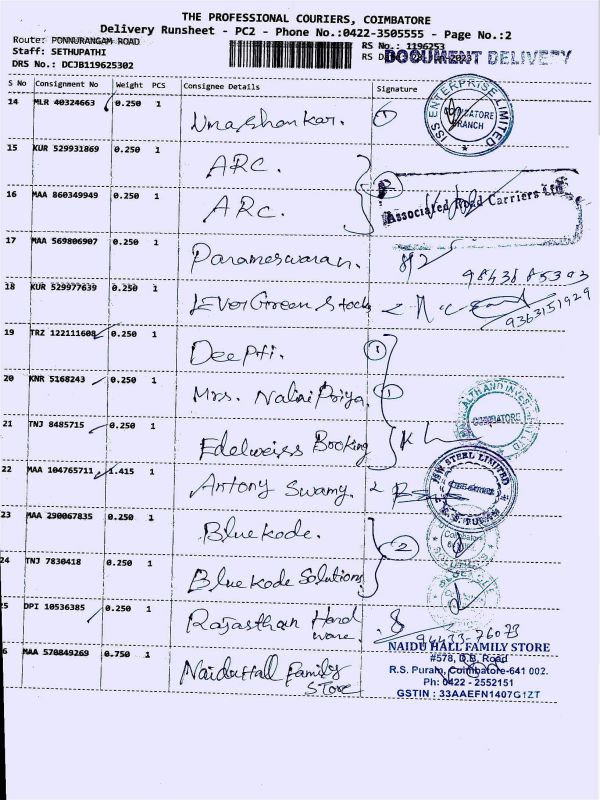 THE PROFESSIONAL COURIERS, COIMBATORE
Delivery Runsheet - PC2 - Phone No.:0422-3505555 - Page No.:2
Route: PONNURANGAM ROAD
RS No.: 1196253
Staff: SETHUPATHI
DOCUMENT DELIVERY
DRS No.: DCJB119625302
S No Consignment No Weight PCS Consignee Details Signature
14 MLR 40324663 0.250 1 Umashankar. 1
ISS ENTERPRISE LIMITED
COIMBATORE
BRANCH
15 KUR 529931869 0.250 1 ARC.
16 MAA 860349949 0.250 1 ARC.
Associated Road Carriers Ltd
17 MAA 569806907 0.250 1 Parameswaran.
18 KUR 529977639 0.250 1 EverGreen Stocks
9363151929
19 TRZ 122111608 0.250 1 Deepti. 1
20 KNR 5168243 0.250 1 Mrs. Nalni Priya. 1
21 TNJ 8485715 0.250 1 Edelweiss Booking
COIMBATORE
22 MAA 104765711 1.415 1 Antony Swamy.
JSW STEEL LIMITED
R.S. PURAM
23 MAA 290067835 0.250 1 Bluekode. 2
Coimbatore
24 TNJ 7830418 0.250 1 Bluekode Solutions
25 DPI 10536385 0.250 1 Rajasthan Hardware.
94433-76073
26 MAA 570849269 0.750 1 Naidu Hall Family Store
NAIDU HALL FAMILY STORE
#578, D.B. Road
R.S. Puram, Coimbatore-641 002.
Ph: 0422 - 2552151
GSTIN : 33AAEFN1407G1ZT